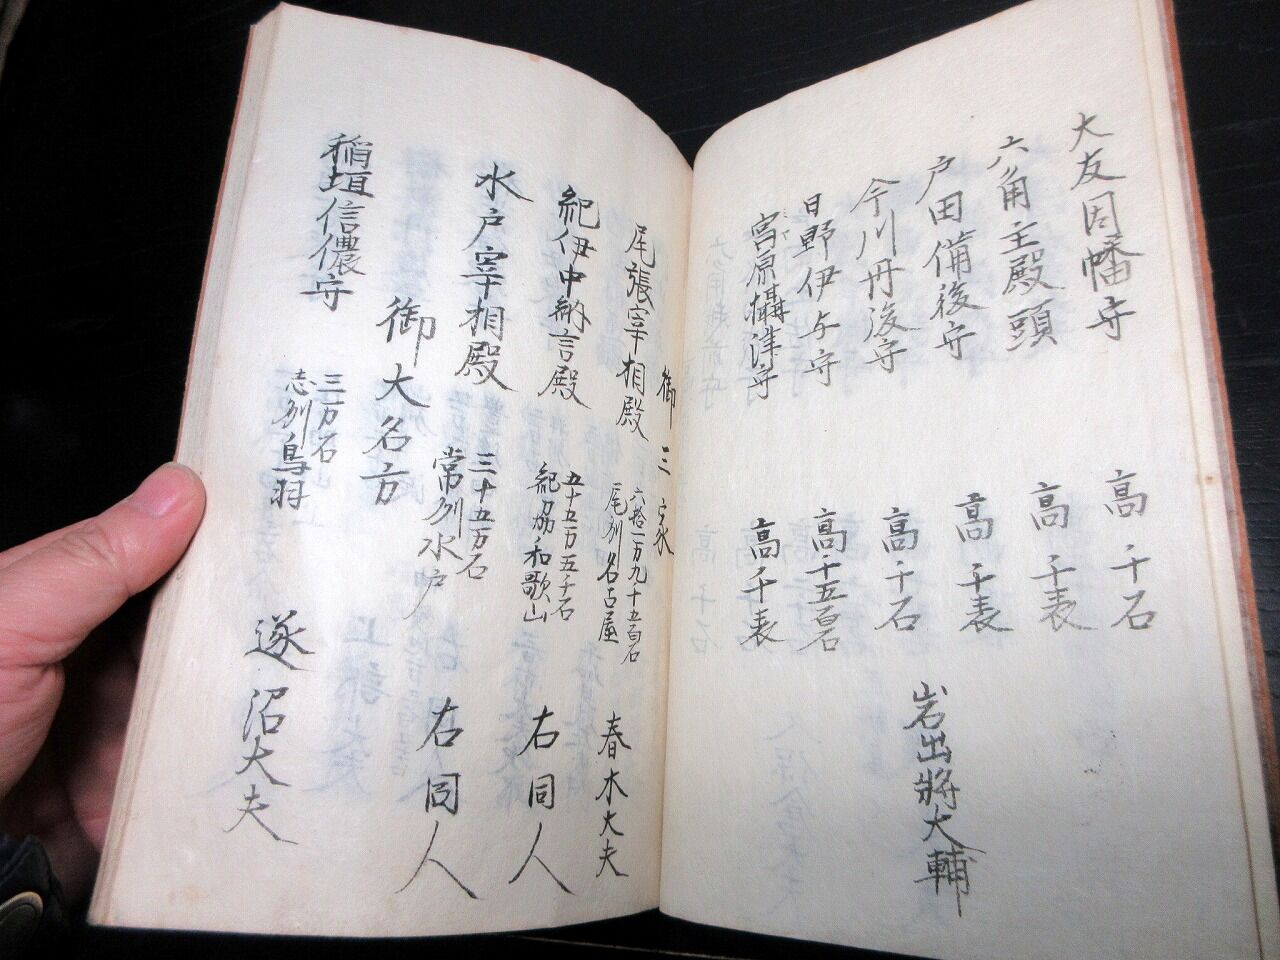 大友因幡守 高千石
六角主殿頭 高千表
戸田備後守 高千表
今川丹後守 高千石 岩出將大輔
日野伊与守 高千五百石
宮原攝津守 高千表
御三家
尾張宰相殿 六拾一万九千五百石 尾刕名古屋 春木大夫
紀伊中納言殿 五十五万五千石 紀刕和歌山 右同人
水戸宰相殿 三十五万石 常刕水戸 右同人
御大名方
稲垣信濃守 三万石 志刕鳥羽 遂沼大夫